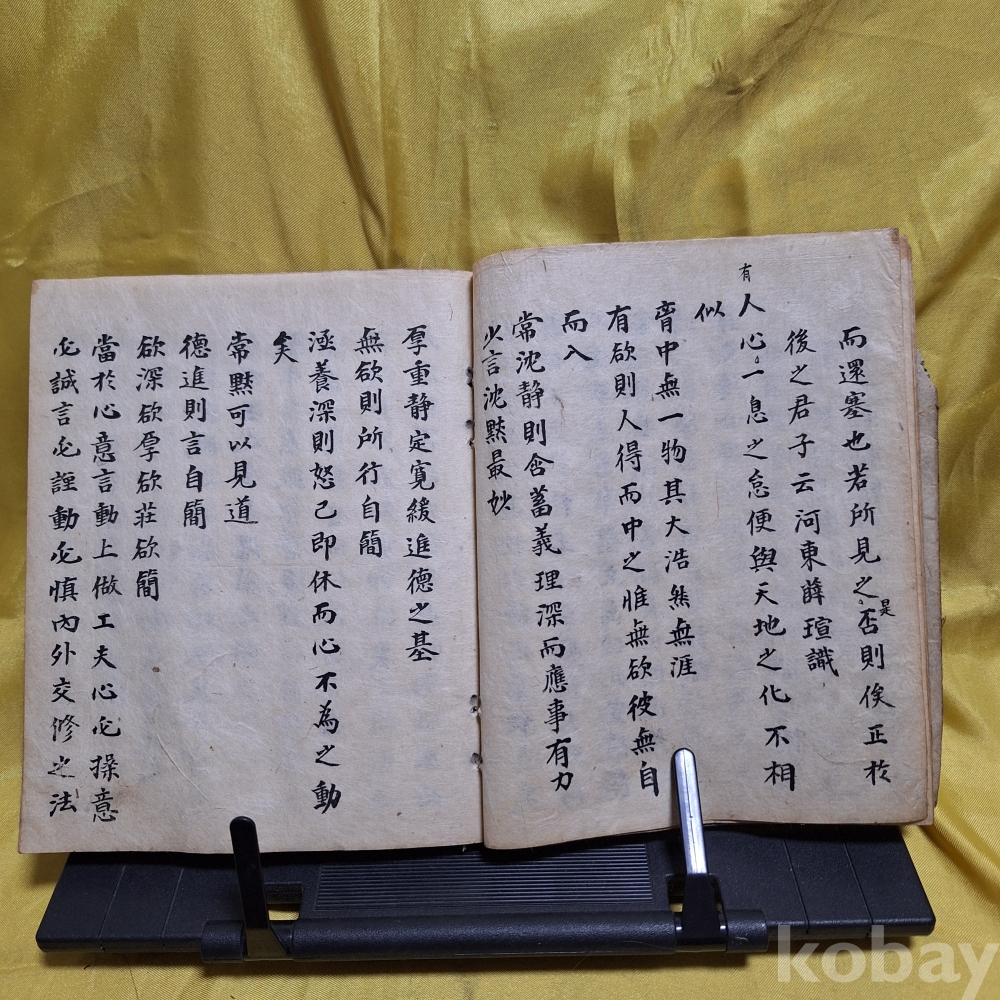 而還塞也若所見之是否則俟正於
後之君子云河東薛瑄識
人心有一息之怠便與天地之化不相
似
胷中無一物其大浩然無涯
有欲則人得而中之惟無欲彼無自
而入
常沈静則含蓄義理深而應事有力
少言沈黙最妙
厚重静定寛緩進德之基
無欲則所行自簡
涵養深則怒已即休而心不為之動
矣
常黙可以見道
德進則言自簡
欲深欲厚欲荘欲簡
當於心意言動上做工夫心必操意
必誠言必謹動必慎内外交修之法
kobay